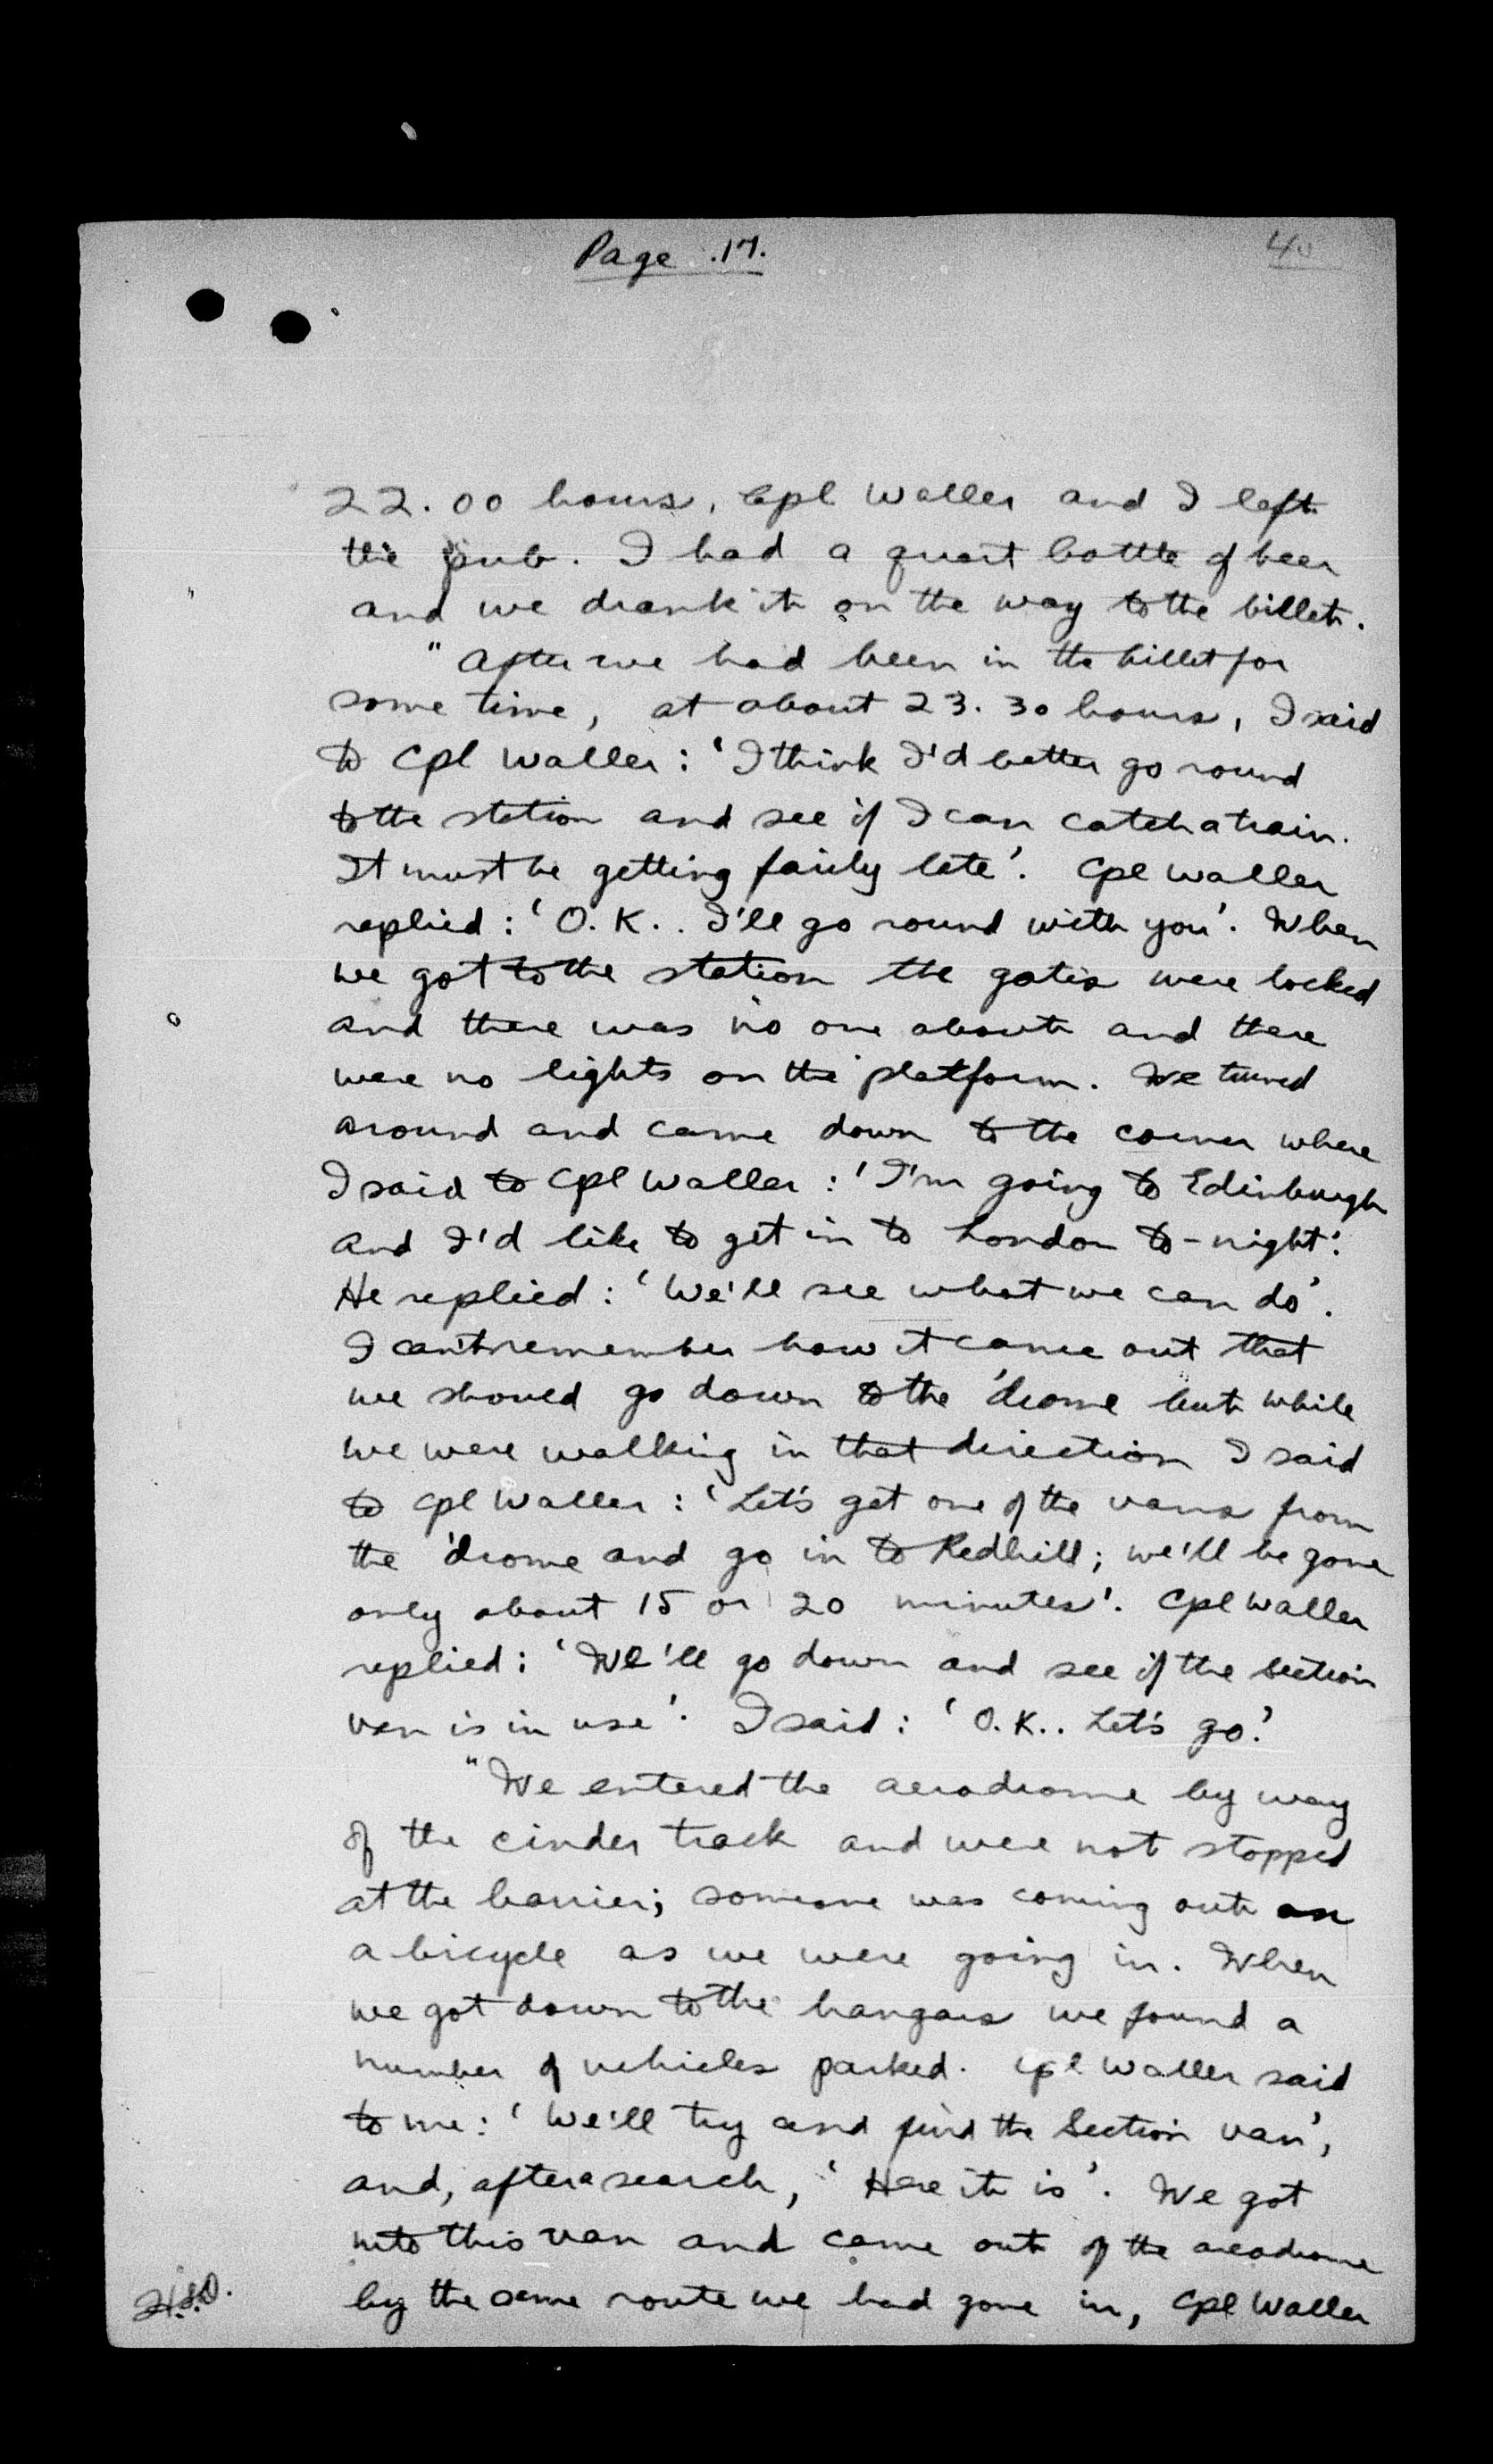 Page .17.
40
22.00 hours, Cpl Waller and I left
the pub. I had a quart bottle of beer
and we drank it on the way to the billet.
"After we had been in the billet for
some time, at about 23.30 hours, I said
to Cpl Waller: 'I think I'd better go round
to the station and see if I can catch a train.
It must be getting fairly late'. Cpl Waller
replied: 'O.K.. I'll go round with you'. When
we got to the station the gates were locked
and there was no one about and there
were no lights on the platform. We turned
around and came down to the corner where
I said to Cpl Waller: 'I'm going to Edinburgh
and I'd like to get in to London to-night'.
He replied: 'We'll see what we can do'.
I can't remember how it came out that
we should go down to the 'drome but while
we were walking in that direction I said
to Cpl Waller: 'Let's get one of the vans from
the 'drome and go in to Redhill; we'll be gone
only about 15 or 20 minutes'. Cpl Waller
replied: 'We'll go down and see if the Section
van is in use'. I said: 'O.K.. Let's go.'
"We entered the aerodrome by way
of the cinder track and were not stopped
at the barrier; someone was coming out on
a bicycle as we were going in. When
we got down to the hangars we found a
number of vehicles parked. Cpl Waller said
to me: 'We'll try and find the Section van',
and, after a search, 'Here it is'. We got
into this van and came out of the aerodrome
by the same route we had gone in, Cpl Waller